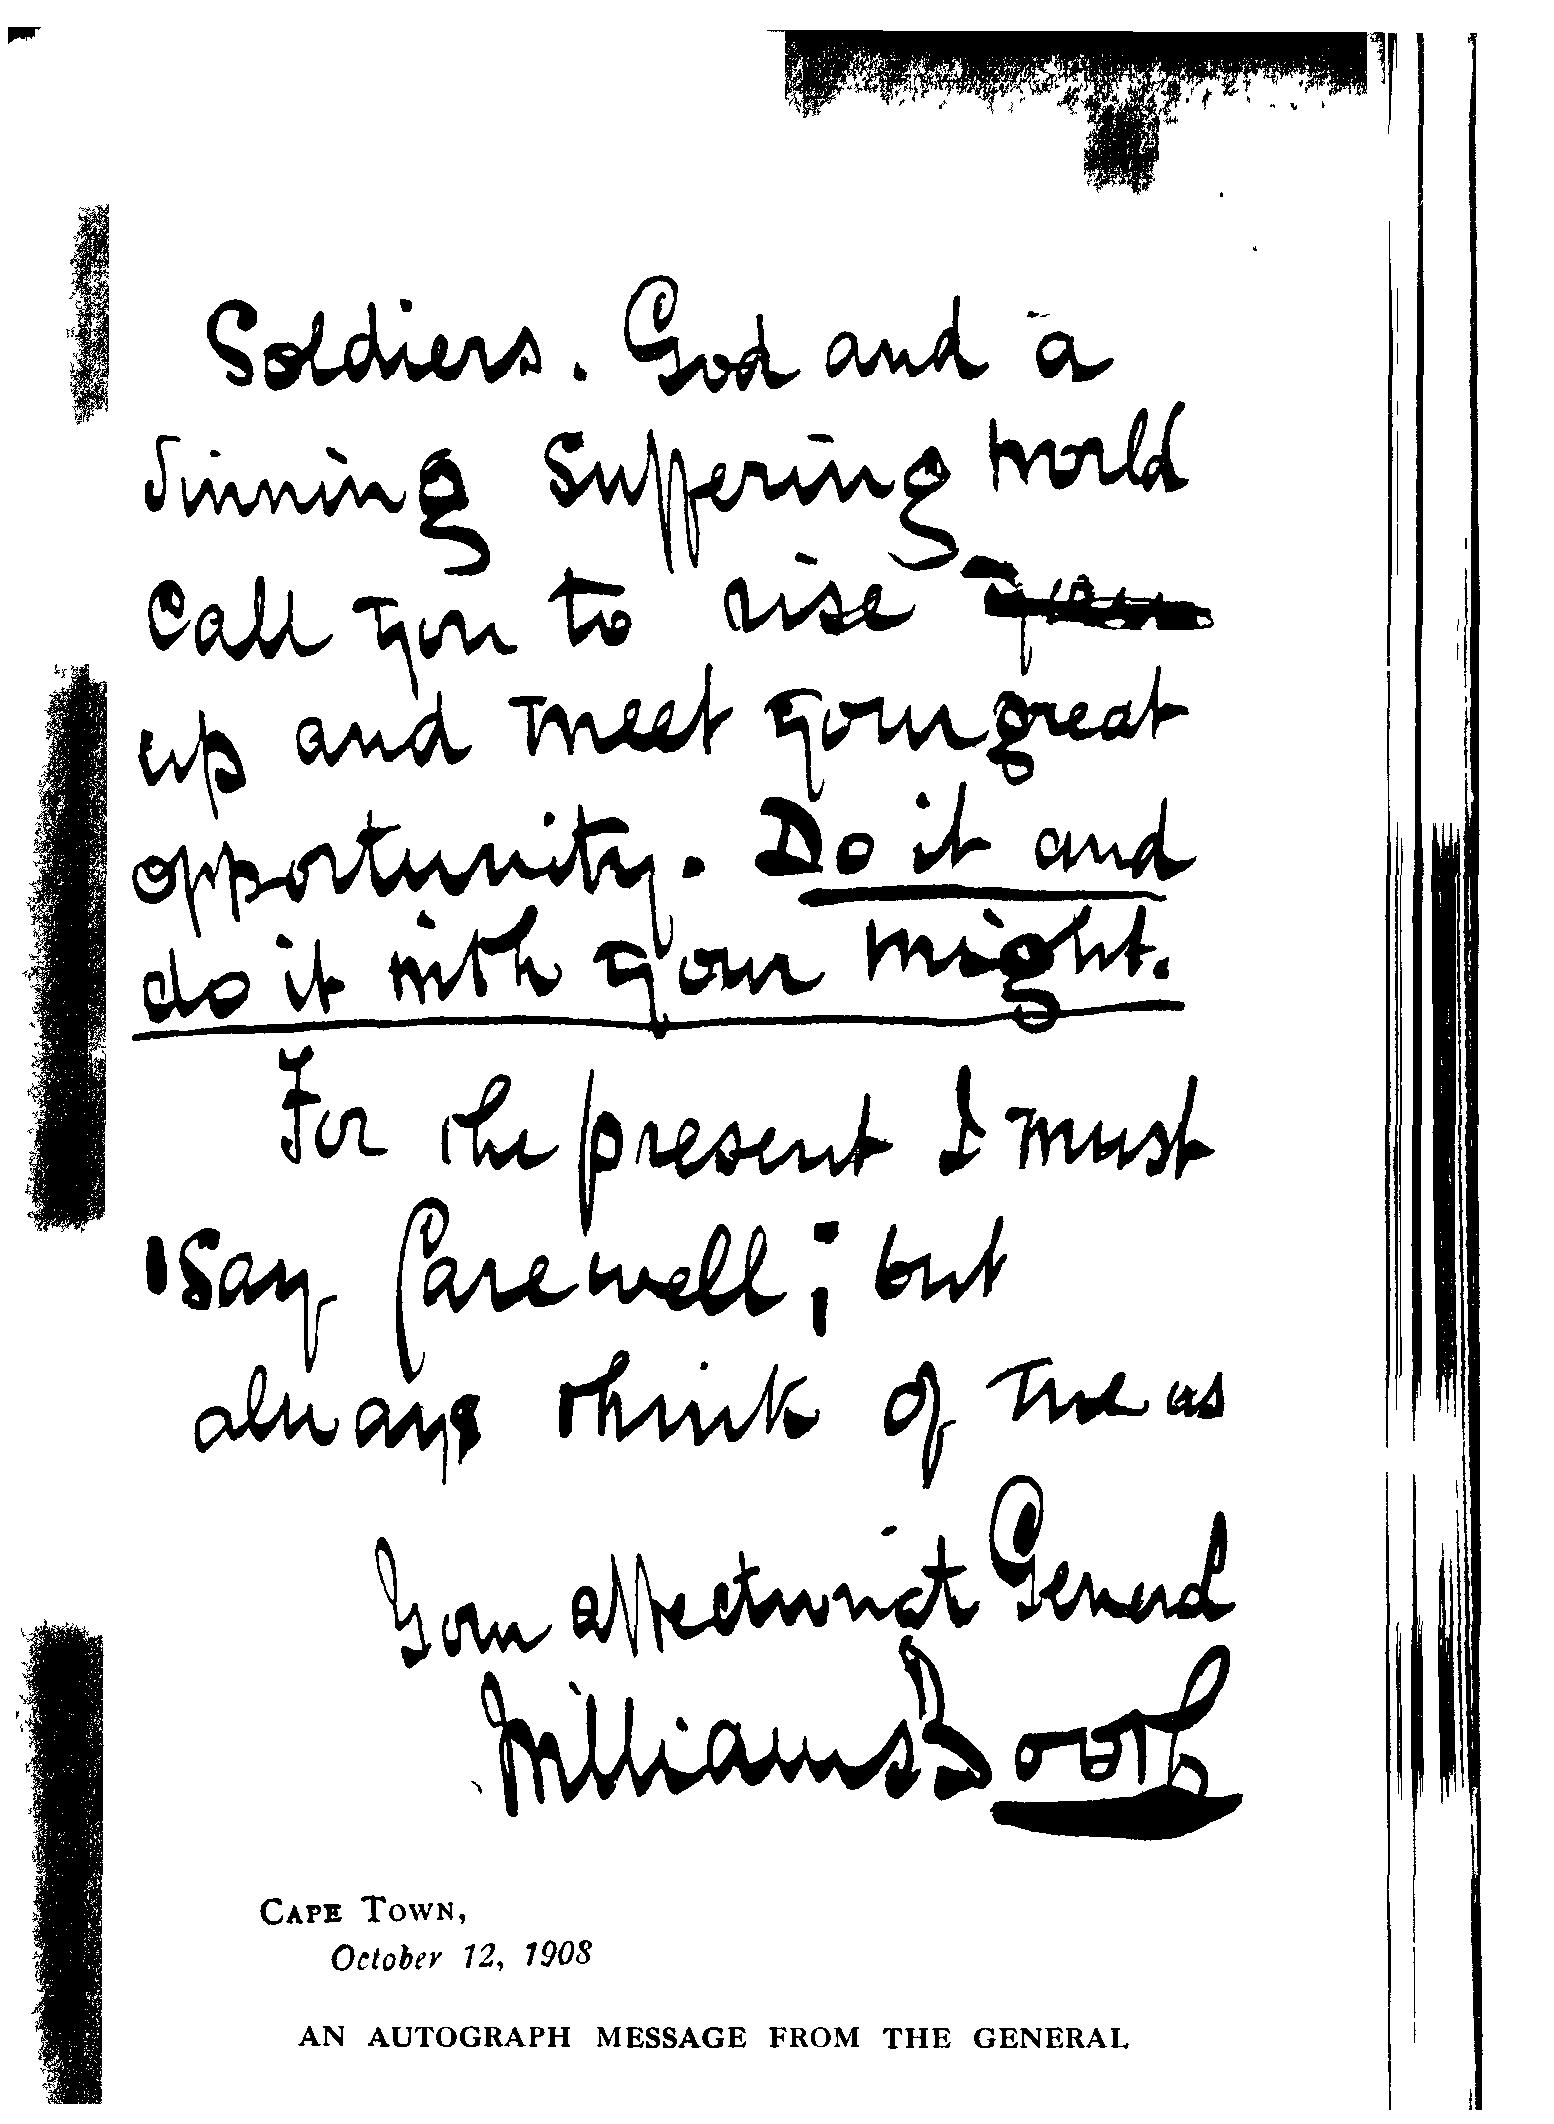 Soldiers. God and a
sinning suffering world
call you to rise
up and meet your great
opportunity. Do it and
do it with your might.
For the present I must
say farewell; but
always think of me as
Your affectionate General
William Booth
CAPE TOWN,
October 12, 1908
AN AUTOGRAPH MESSAGE FROM THE GENERAL